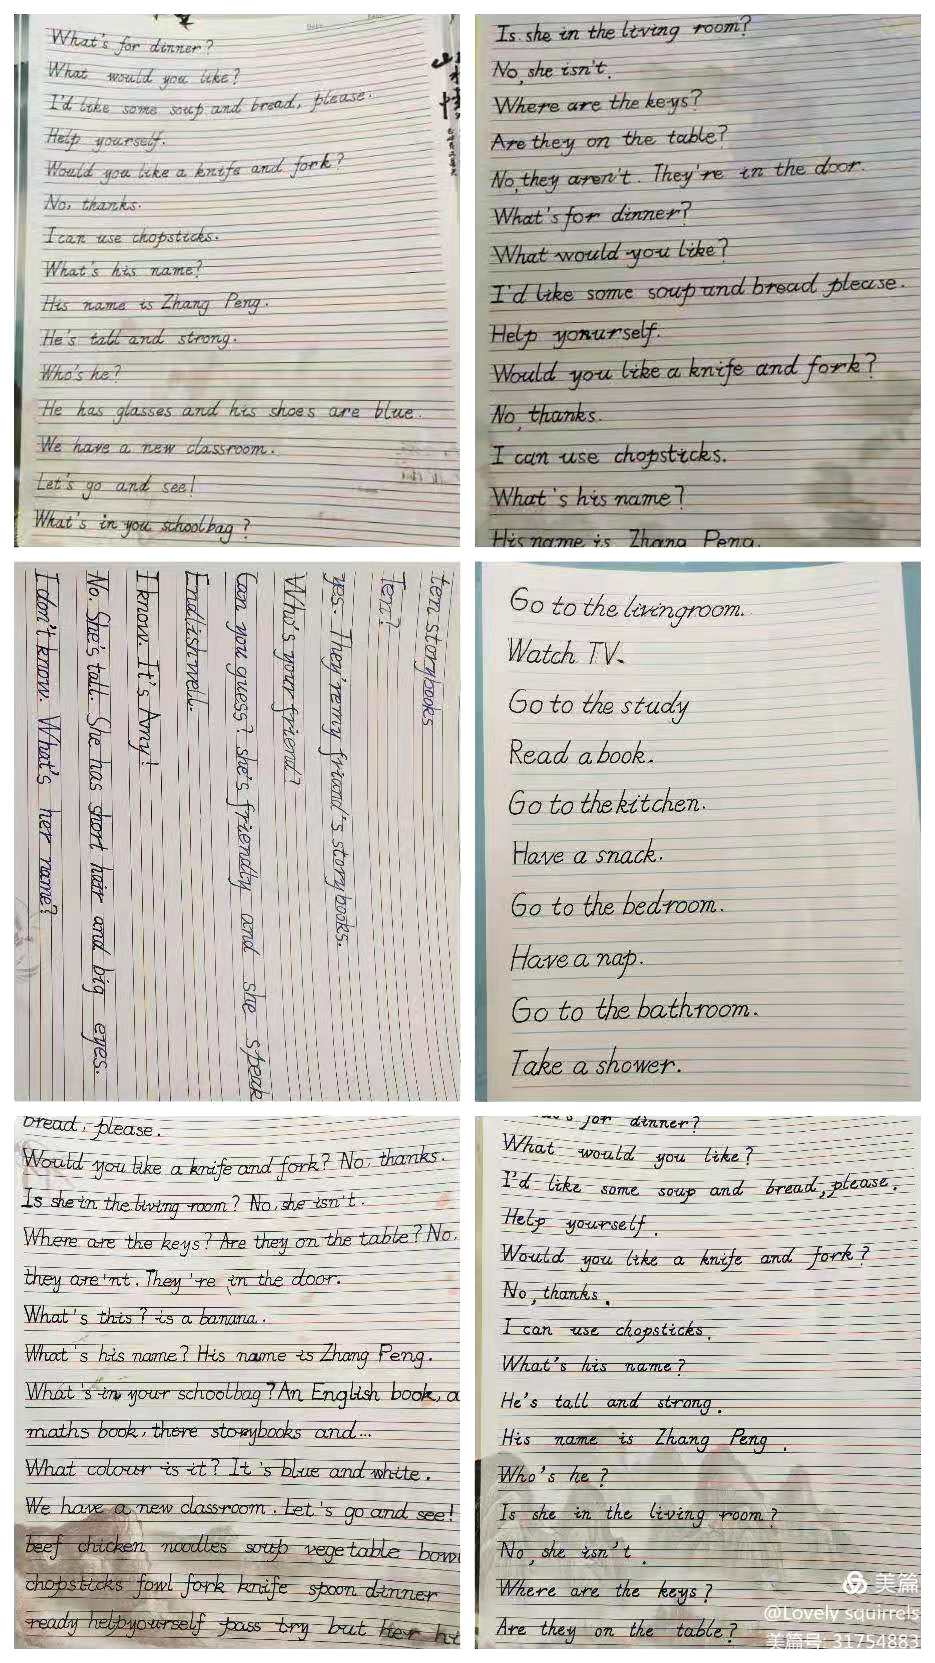 What's for dinner?
What would you like?
I'd like some soup and bread, please.
Help yourself.
Would you like a knife and fork?
No, thanks.
I can use chopsticks.
What's his name?
His name is Zhang Peng.
He's tall and strong.
Who's he?
He has glasses and his shoes are blue.
We have a new classroom.
Let's go and see!
What's in you schoolbag?
Is she in the living room?
No, she isn't.
Where are the keys?
Are they on the table?
No, they aren't. They're in the door.
What's for dinner?
What would you like?
I'd like some soup and bread please.
Help yonurself.
Would you like a knife and fork?
No, thanks.
I can use chopsticks.
What's his name?
His name is Zhang Peng.
ten storybooks
Ten?
yes. They're my friend's storybooks.
Who's your friend?
Can you guess? she's friendly and she speak
English well.
I know. It's Amy!
No. She's tall. She has short hair and big eyes.
I don't know. What's her name?
Go to the livingroom.
Watch TV.
Go to the study
Read a book.
Go to the kitchen.
Have a snack.
Go to the bedroom.
Have a nap.
Go to the bathroom.
Take a shower.
bread, please.
Would you like a knife and fork? No, thanks.
Is she in the living room? No, she isn't.
Where are the keys? Are they on the table? No,
they are'nt. They're in the door.
What's this? is a banana.
What's his name? His name is Zhang Peng.
What's in your schoolbag? An English book, a
maths book, there storybooks and...
What colour is it? It's blue and white.
We have a new classroom. Let's go and see!
beef chicken noodles soup vegetable bowl
chopsticks fowl fork knife spoon dinner
ready helpyourself pass try but her
for dinner?
What would you like?
I'd like some soup and bread, please.
Help yourself.
Would you like a knife and fork?
No, thanks.
I can use chopsticks.
What's his name?
He's tall and strong.
His name is Zhang Peng.
Who's he?
Is she in the living room?
No, she isn't.
Where are the keys?
Are they on the table?
美篇
@Lovely squirrels
美篇号: 31754883